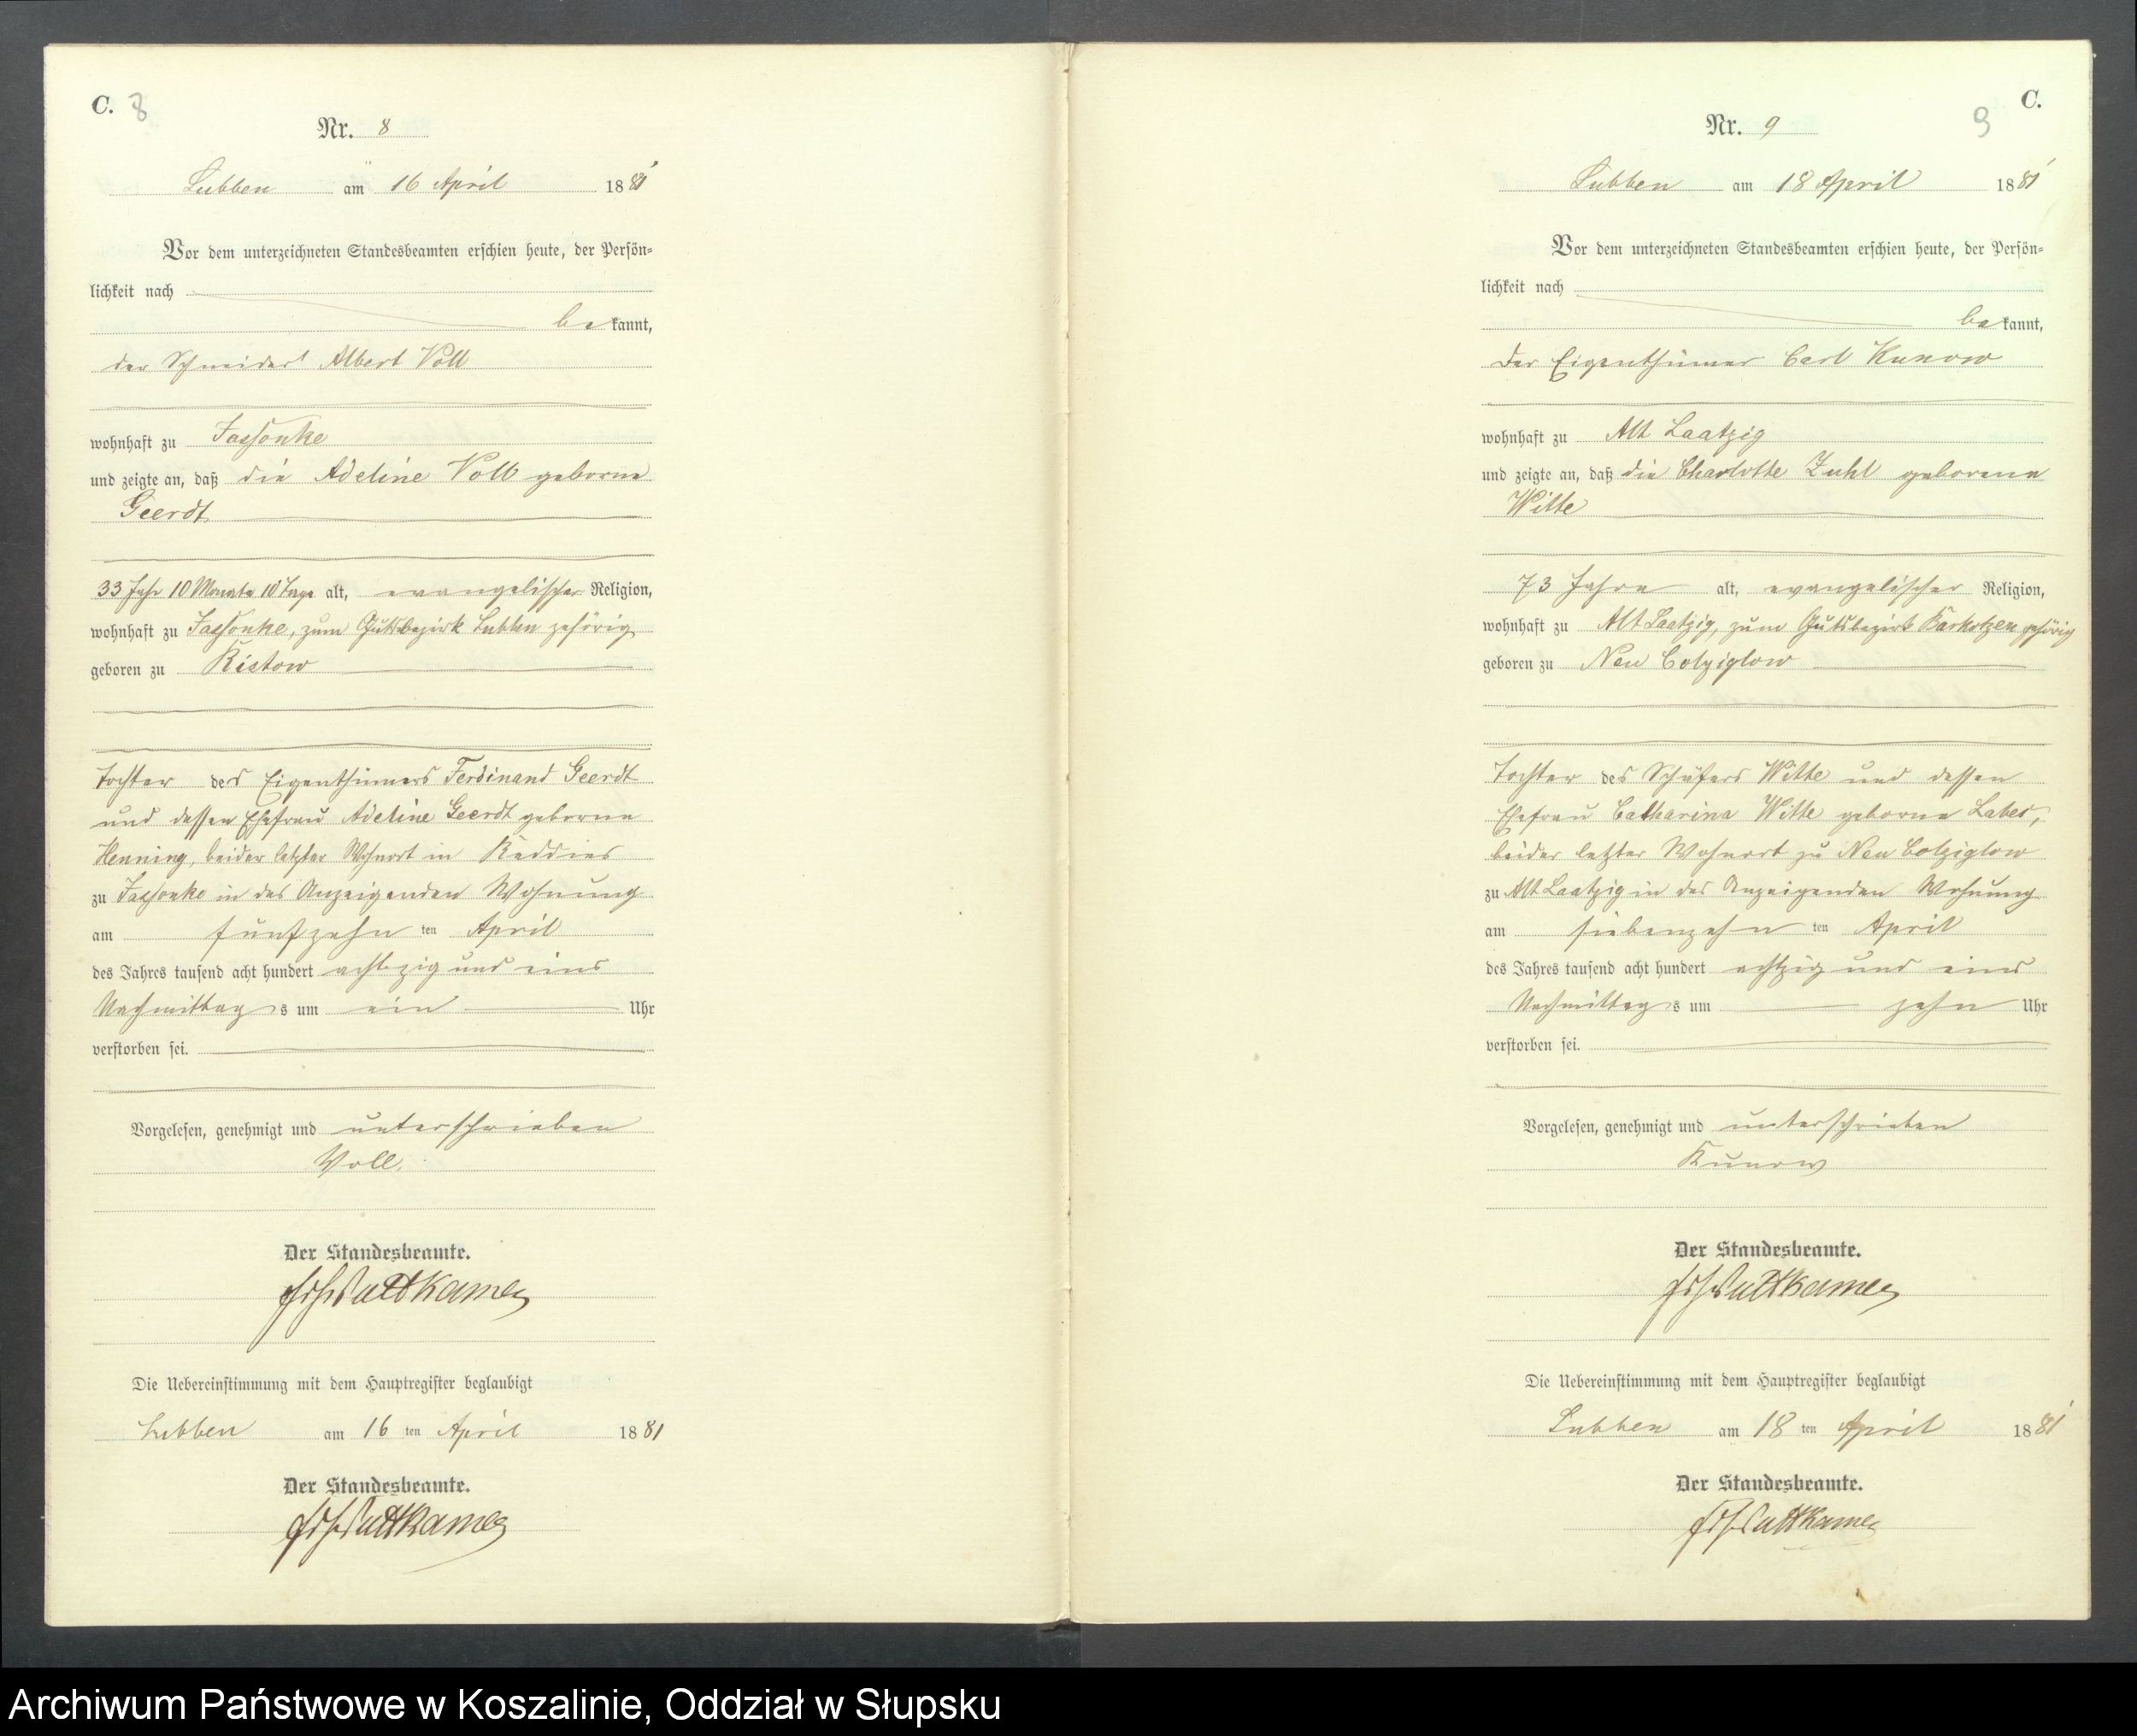 C. 8
Nr. 8
Lubben am 16 April 1881
Vor dem unterzeichneten Standesbeamten erschien heute, der Persön-
lichkeit nach
bekannt,
der Schneider Albert Voll
wohnhaft zu Jassonke
und zeigte an, daß die Adeline Voll geborne
Geerdt
33 Jahr 10 Monate 10 Tage alt, evangelischer Religion,
wohnhaft zu Jassonke, zum Gutsbezirk Lubben gehörig
geboren zu Ristow
Tochter des Eigenthümers Ferdinand Geerdt
und dessen Ehefrau Adeline Geerdt geborne
Henning, beider letzter Wohnort in Reddies
zu Jassonke in des Anzeigenden Wohnung
am fünfzehn ten April
des Jahres tausend acht hundert achtzig und eins
Nachmittags um ein Uhr
verstorben sei.
Vorgelesen, genehmigt und unterschrieben
Voll.
Der Standesbeamte.
Puttkamer
Die Uebereinstimmung mit dem Hauptregister beglaubigt
Lubben am 16 ten April 1881
Der Standesbeamte.
Puttkamer
C.
9
Nr. 9
Lubben am 18 April 1881
Vor dem unterzeichneten Standesbeamten erschien heute, der Persön-
lichkeit nach
bekannt,
der Eigenthümer Carl Kunow
wohnhaft zu Alt Laatzig
und zeigte an, daß die Charlotte Zuhl geborene
Witte
73 Jahre alt, evangelischer Religion,
wohnhaft zu Alt Laatzig, zum Gutsbezirk Barkotzen gehörig
geboren zu Neu Colziglow
Tochter des Schäfers Witte und dessen
Ehefrau Catharina Witte geborne Labes,
beider letzter Wohnort zu Neu Colziglow
zu Alt Laatzig in des Anzeigenden Wohnung
am siebenzehn ten April
des Jahres tausend acht hundert achtzig und eins
Nachmittags um zehn Uhr
verstorben sei.
Vorgelesen, genehmigt und unterschrieben
Kunow
Der Standesbeamte.
Puttkamer
Die Uebereinstimmung mit dem Hauptregister beglaubigt
Lubben am 18 ten April 1881
Der Standesbeamte.
Puttkamer
Archiwum Państwowe w Koszalinie, Oddział w Słupsku